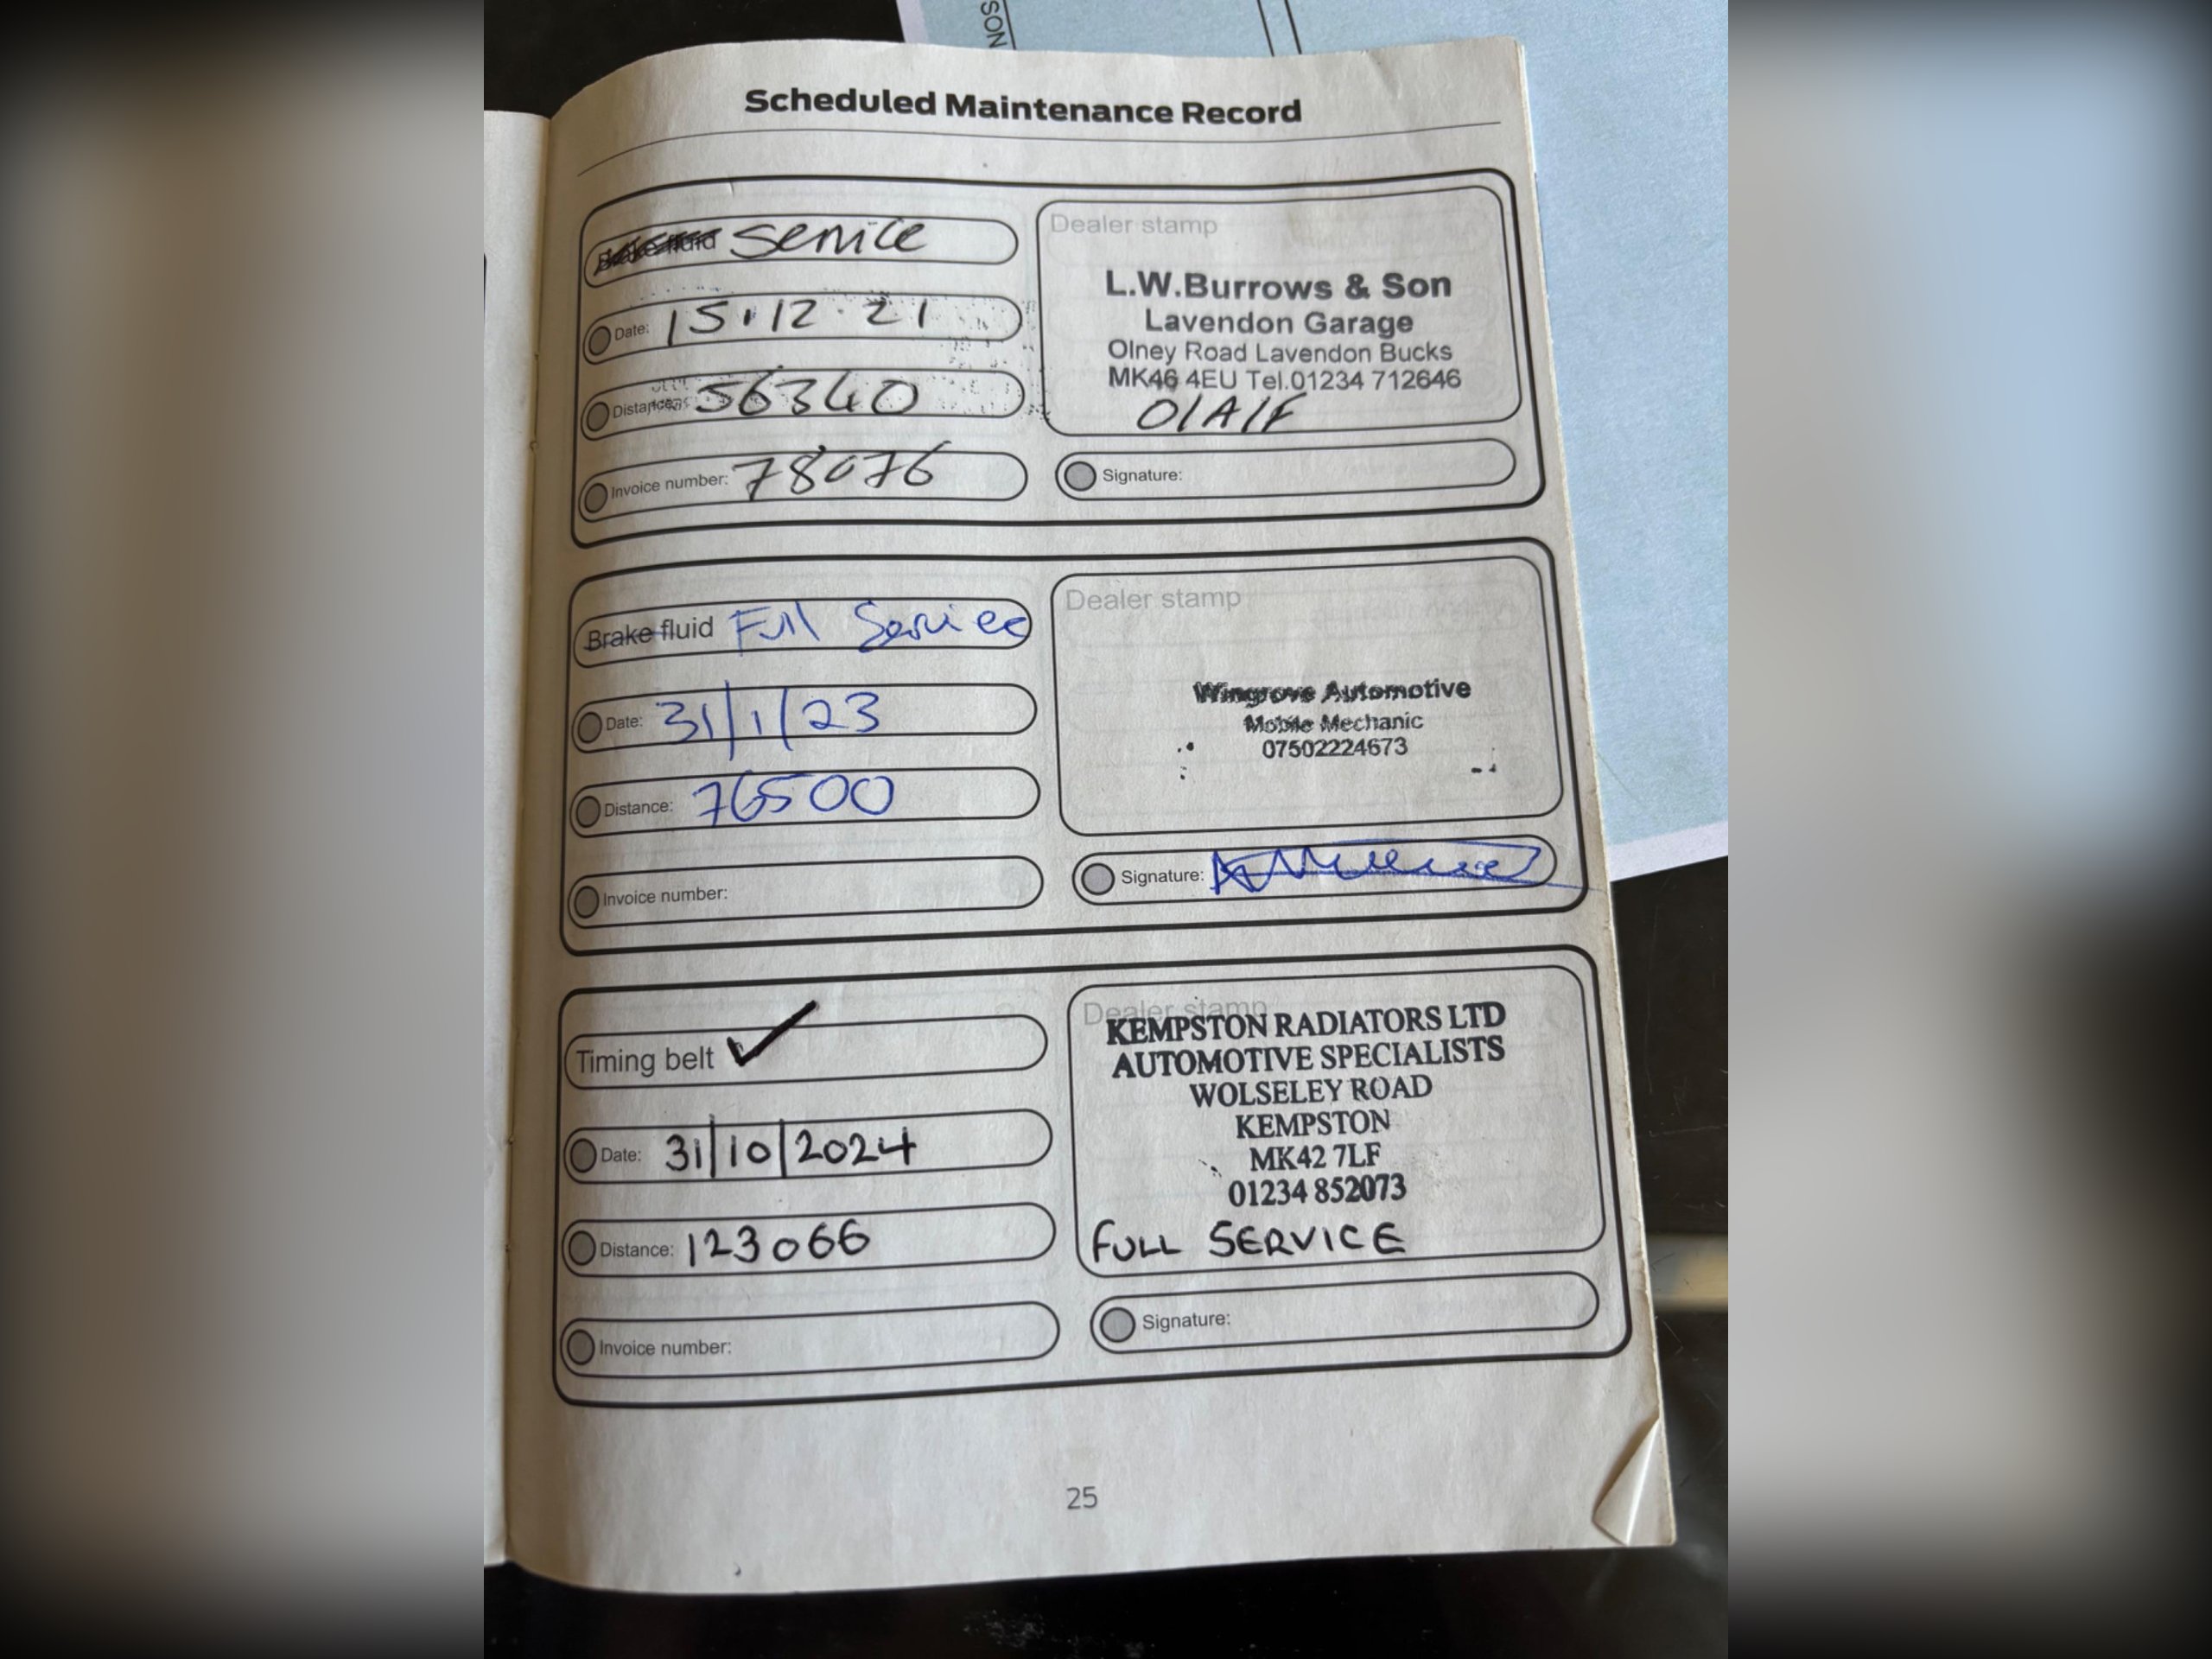 SON
Scheduled Maintenance Record
Brake fluid Service
Date: 15.12.21
Distance: 56340
Invoice number: 78076
Dealer stamp
L.W.Burrows & Son
Lavendon Garage
Olney Road Lavendon Bucks
MK46 4EU Tel.01234 712646
O/A/F
Signature:
Brake fluid Full Service
Date: 31/1/23
Distance: 76500
Invoice number:
Dealer stamp
Wingrove Automotive
Mobile Mechanic
07502224673
Signature:
Timing belt ✓
Date: 31/10/2024
Distance: 123066
Invoice number:
Dealer stamp
KEMPSTON RADIATORS LTD
AUTOMOTIVE SPECIALISTS
WOLSELEY ROAD
KEMPSTON
MK42 7LF
01234 852073
FULL SERVICE
Signature:
25